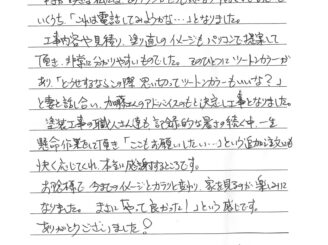 いくうち、「これは電話してみようかな…」となりました。
工事内容や見積り、塗り直しのイメージもパソコンで提案して
頂き、非常に分かりやすいものでした。そのひとつにツートンカラーが
あり「どうせするならこの際思い切ってツートンカラーもいいな?」
と妻と話し合い、加藤さんのアドバイスのもと決定し工事となりました。
塗装工事の職人さん達も、記録的な暑さの続く中、一生
懸命作業をして頂き「ここもお願いしたい…」という追加注文も
快く応じてくれ、本当に感謝するところです。
お陰様で今までのイメージとガラッと変わり、家を見るのが楽しみに
なりました。まさに「やって良かった!」という感じです。
ありがとうございました!